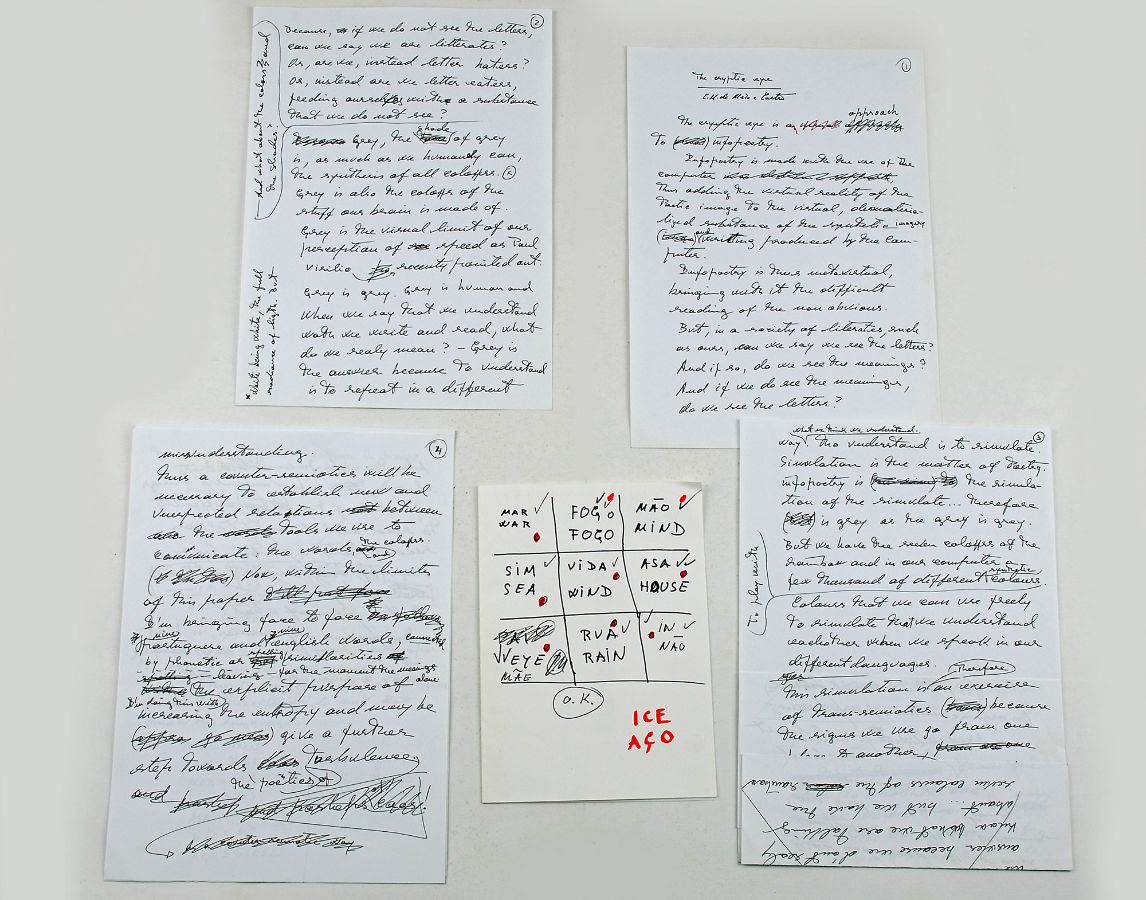 1
The cryptic eye
E. M. de Melo e Castro
The cryptic eye is an approach
To infopoetry.
Infopoetry is made with the use of the
computer
Thus adding the virtual reality of the
Poetic image to the virtual, demateria-
lized substance of the synthetic imagery
and writing produced by the com-
puter.
Infopoetry is thus metavirtual,
bringing with it the difficult
reading of the non obvious.
But, in a society of literates, such
as ours, can we say we see the letters?
And if so, do we see the meanings?
And if we do see the meanings,
do we see the letters?
2
Because, if we do not see the letters,
can we say we are litterates?
Or, are we, instead letter haters?
Or, instead are we letter eaters,
feeding ourselves with a substance
that we do not see?
And what about the colours and
the shades?
Grey, the shade of grey
is, as much as we humanly can,
the synthesis of all colours.
Grey is also the colour of the
stuff our brain is made of.
Grey is the visual limit of our
perception of speed as Paul
Virilio recently pointed out.
Grey is grey. Grey is human and
when we say that we understand
wath we write and read, what
do we realy mean? – Grey is
the answer because to understand
is to repeat in a different
* White being white, the full
radiance of ligth. But
3
what we think we understand.
way. Tho understand is to simulate.
Simulation is the matter of Poetry.
infopoetry is the simula-
tion of the simulate... Therefore
is grey as the grey is grey.
But we have the seven colours of the
rainbow and in our computer a
few thousand of different synthetic colours.
To play with
Colours that we can use freely
to simulate that we understand
eachother when we speak in our
different languages.
Therefore
This simulation is an exercise
of trans-semiotics because
the signs we use go from one
to another,
answer because we don't realy
know what we are talking
about... but we have the
seven colours of the rainbow
4
missunderstanding.
Thus a counter-semiotics will be
necessary to establish new and
unexpected relations between
the tools we use to
communicate: the words and the colours.
Now, within the limites
of this paper
I'm bringing face to face
nine portuguese and nine english words, connected
by phonetic or spelling similarities
– leaving for the moment the meanings alone
I'm doing this with
the explicit purpose of
increasing the entropy and may be
give a further
step towards turbulence
and the poetics
MAR ✓
WAR
FOGO ✓
FOGO
MÃO ✓
MIND
SIM ✓
SEA
VIDA ✓
WIND
ASA ✓
HOUSE
EYE
MAE
RUA ✓
RAIN
IN
NÃO
O.K.
ICE
AÇO